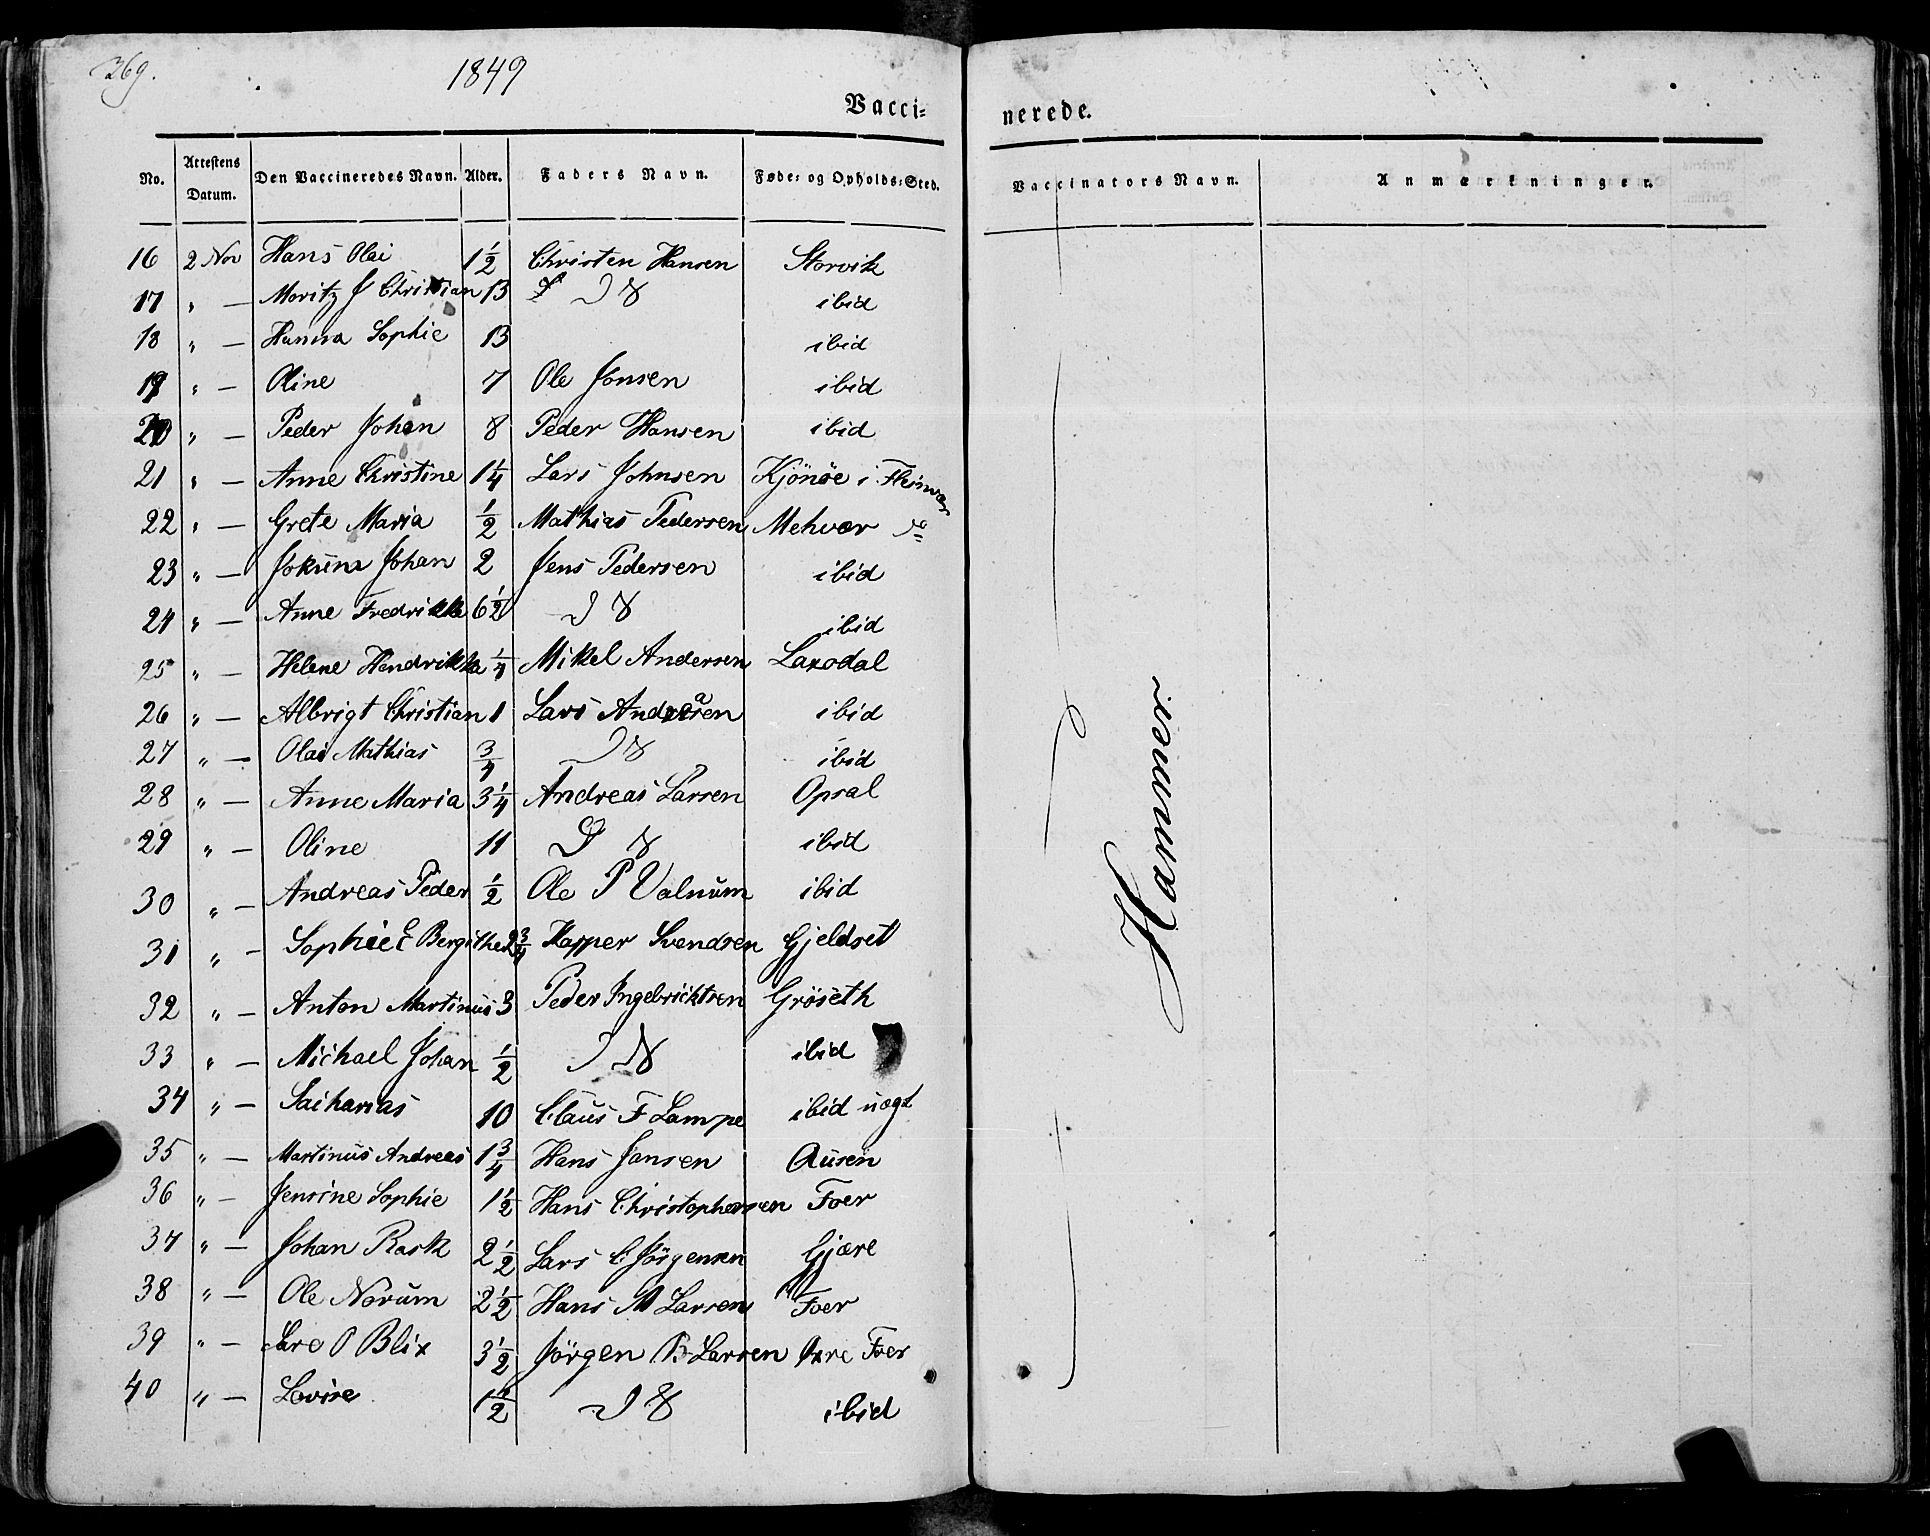 369.
1849
Vacci=
nerede.
No. Attestens Datum. Den Vaccineredes Navn. Alder. Faders Navn. Føde= og Opholds=Sted. Vaccinators Navn. Anmærkninger.
16 2 Nov Hans Olai 1½ Christen Hansen Storvik
17 " — Moritz J Christian 13 ibid
18 " — Hanna Sophie 13 ibid
19 " — Oline 7 Ole Jonsen ibid
20 " — Peder Johan 8 Peder Hansen ibid
21 " — Anne Christine 1¼ Lars Johnsen Kjönöe i Fleinvær
22 " — Grete Maria ½ Mathias Pedersen Mehvær
23 " — Johan 2 Jens Pedersen ibid
24 " — Anne Fredrikke 6½ ibid
25 " — Helene Hendrikka ¼ Mikel Andersen
26 " — Albrigt Christian 1 Lars ibid
27 " — Olai Mathias ¾ ibid
28 " — Anne Maria 3¼ Andreas Larsen Opsal
29 " — Oline 11 ibid
30 " — Andreas Peder ½ Ole P Valnum ibid
31 " — Sophie E Bergithe Svendsen Gjeldset
32 " — Anton Martinus 3 Peder Ingebricktsen Gröseth
33 " — Michael Johan ½ ibid
34 " — Sacharias 10 Claus F Lampe ibid
35 " — Martinus Andreas 1¾ Hans Jansen Ausen
36 " — Jensine Sophie 1½ Hans Christophersen Foer
37 " — Johan Rask 2½ Lars C Jörgensen Gjære
38 " — Ole Norum 2½ Hans M Larsen Foer
39 " — P Blix 3½ Jörgen B Larsen Foer
40 " — Lovise 1½ ibid